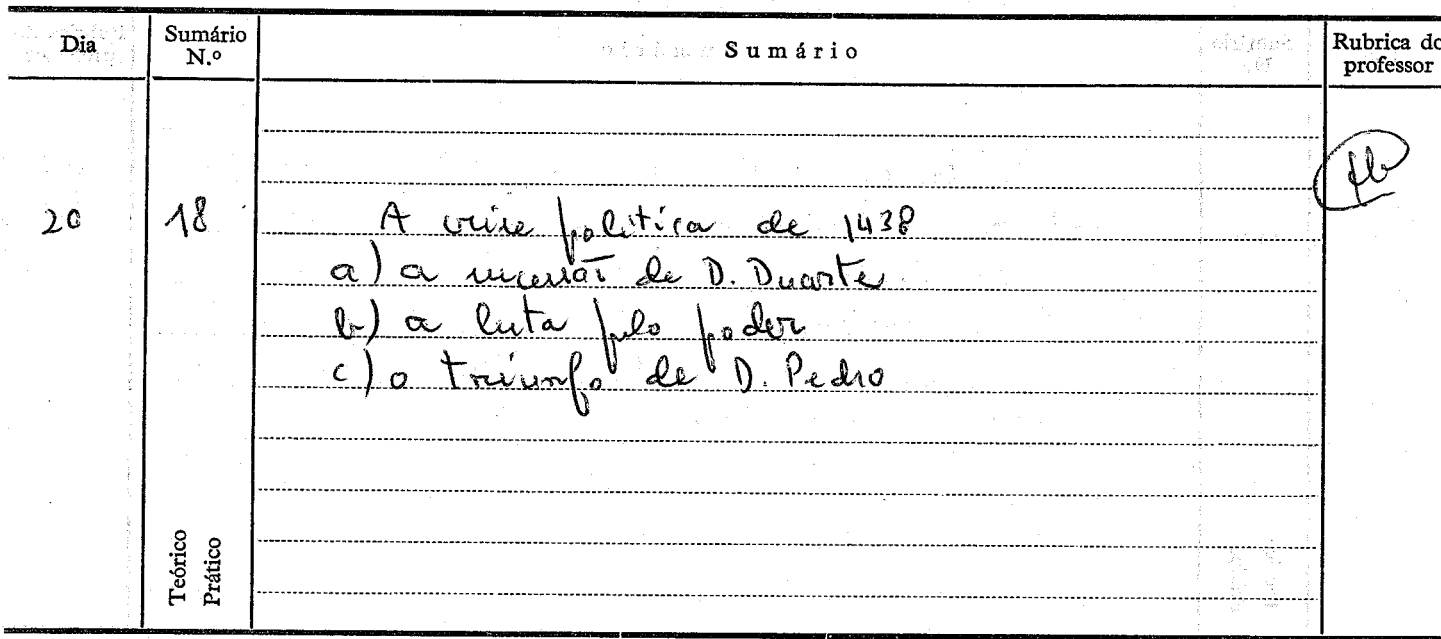 Dia
Sumário N.º
Sumário
Rubrica do professor
20
18
A crise política de 1438
a) a sucessão de D. Duarte
b) a luta pelo poder
c) o triunfo de D. Pedro
Teórico
Prático